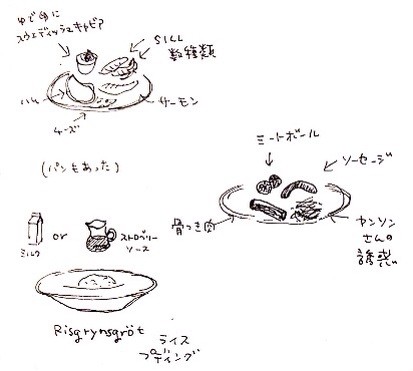 ゆで卵に
スウェディッシュキャビア
SILL
数種類
ハム
サーモン
チーズ
(パンもあった)
ミートボール
ソーセージ
骨つき肉
ヤンソン
さんの
誘惑
ミルク
or
ストロベリー
ソース
Risgrynsgröt
ライス
プディング